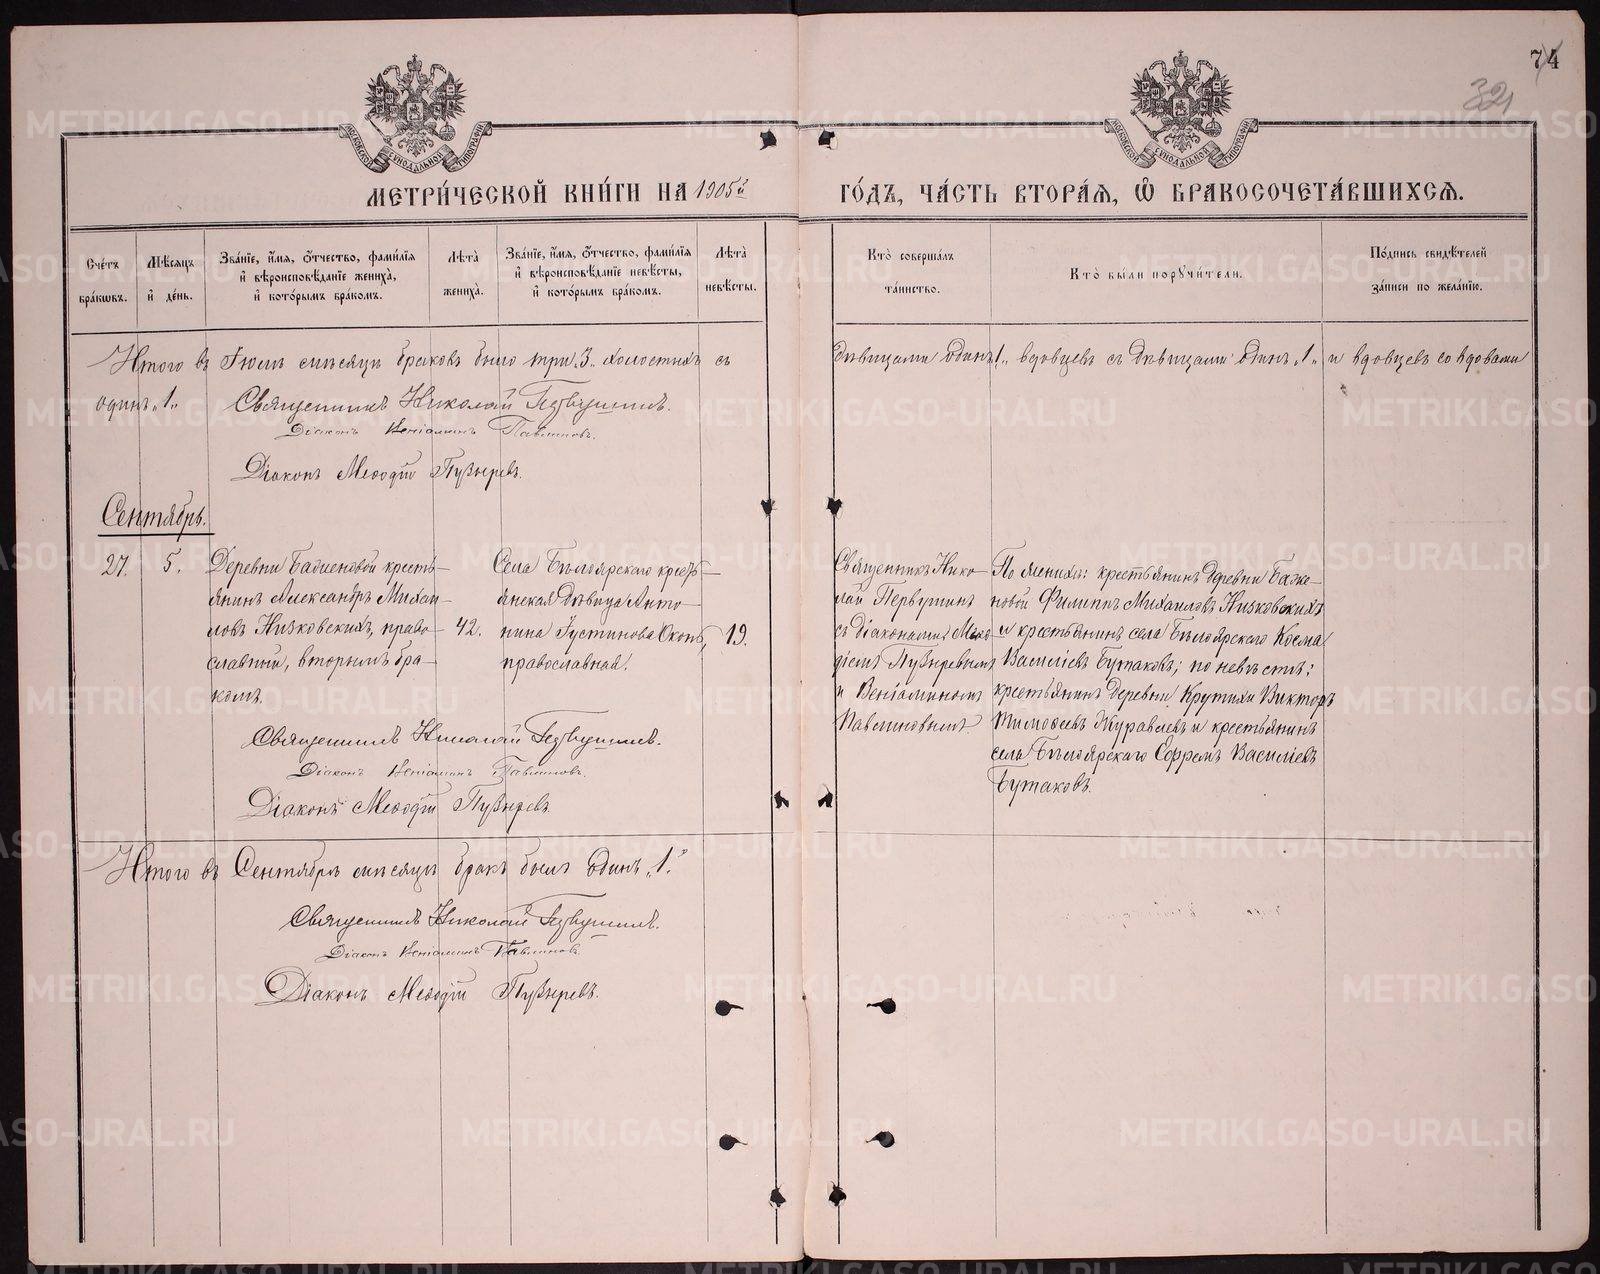 74
32
МОСКОВСКОЙ СѴНОДАЛЬНОЙ ТИПОГРАФІИ
МОСКОВСКОЙ СѴНОДАЛЬНОЙ ТИПОГРАФІИ
МЕТРИ́ЧЕСКОЙ КНИ́ГИ НА 1905й ГО́ДЪ, ЧА́СТЬ ВТОРА́Я, Ѡ҆ БРАКОСОЧЕТА́ВШИХСѦ.
Сче́тъ бра́кѡвъ.
Мѣ́сяцъ и҆ де́нь.
Зва́нїе, и҆́мя, ѻ҆́тчество, фами́лїя и҆ вѣроисповѣ́данїе жениха̀, и҆ кото́рымъ бра́комъ.
Лѣ́та жениха̀.
Зва́нїе, и҆́мя, ѻ҆́тчество, фами́лїя и҆ вѣроисповѣ́данїе невѣ́сты, и҆ кото́рымъ бра́комъ.
Лѣ́та невѣ́сты.
Кто̀ соверша́лъ та́инство.
Кто̀ бы́ли порꙋчи́тели.
По́дпись свидѣ́телей за́писи по жела́нїю.
Итого въ Іюлѣ мѣсяцѣ браковъ было три „3„ холостыхъ съ дѣвицами одинъ „1„ вдовцевъ съ дѣвицами одинъ „1„ и вдовцевъ со вдовами
одинъ „1„
Священникъ Николай Первушинъ.
Діаконъ Веніаминъ Павлиновъ.
Діаконъ Меѳодій Пузыревъ.
Сентябрь.
27.
5.
Деревни Баженовой кресть-
янинъ Александръ Михаи-
ловъ Низковскихъ, право-
славный, вторымъ бра-
комъ.
42.
Села Бѣлоярскаго кресть-
янская дѣвица Анто-
нина Іустинова
православная.
19.
Священникъ Нико-
лай Первушинъ
съ діаконами Меѳо-
діемъ Пузыревымъ
и Веніаминомъ
Павлиновымъ.
По женихѣ: крестьянинъ деревни Баже-
новой Филиппъ Михаиловъ Низковскихъ
и крестьянинъ села Бѣлоярскаго Косма
Василіевъ Бутаковъ; по невѣстѣ:
крестьянинъ деревни Крутихи Викторъ
Тимоѳеевъ Журавлевъ и крестьянинъ
села Бѣлоярскаго Ефремъ Василіевъ
Бутаковъ.
Священникъ Николай Первушинъ.
Діаконъ Веніаминъ Павлиновъ.
Діаконъ Меѳодій Пузыревъ.
Итого въ Сентябрѣ мѣсяцѣ бракъ былъ одинъ „1.„
Священникъ Николай Первушинъ.
Діаконъ Веніаминъ Павлиновъ.
Діаконъ Меѳодій Пузыревъ.
METRIKI.GASO-URAL.RU